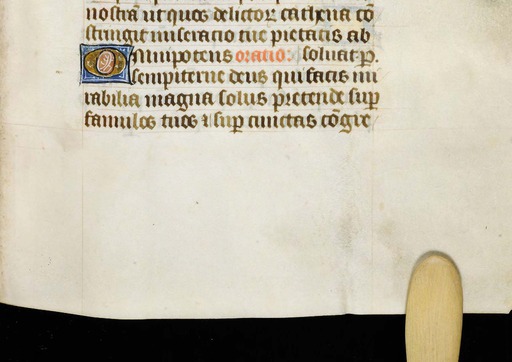 nostrā ut quos delictoꝝ cathena cō
stringit miseracio tue pietatis ab
Omnipotens oratio: soluat p.
sempiterne deus qui facis mi
rabilia magna solus pretende sup
famulos tuos ⁊ sup cunctas cōgre